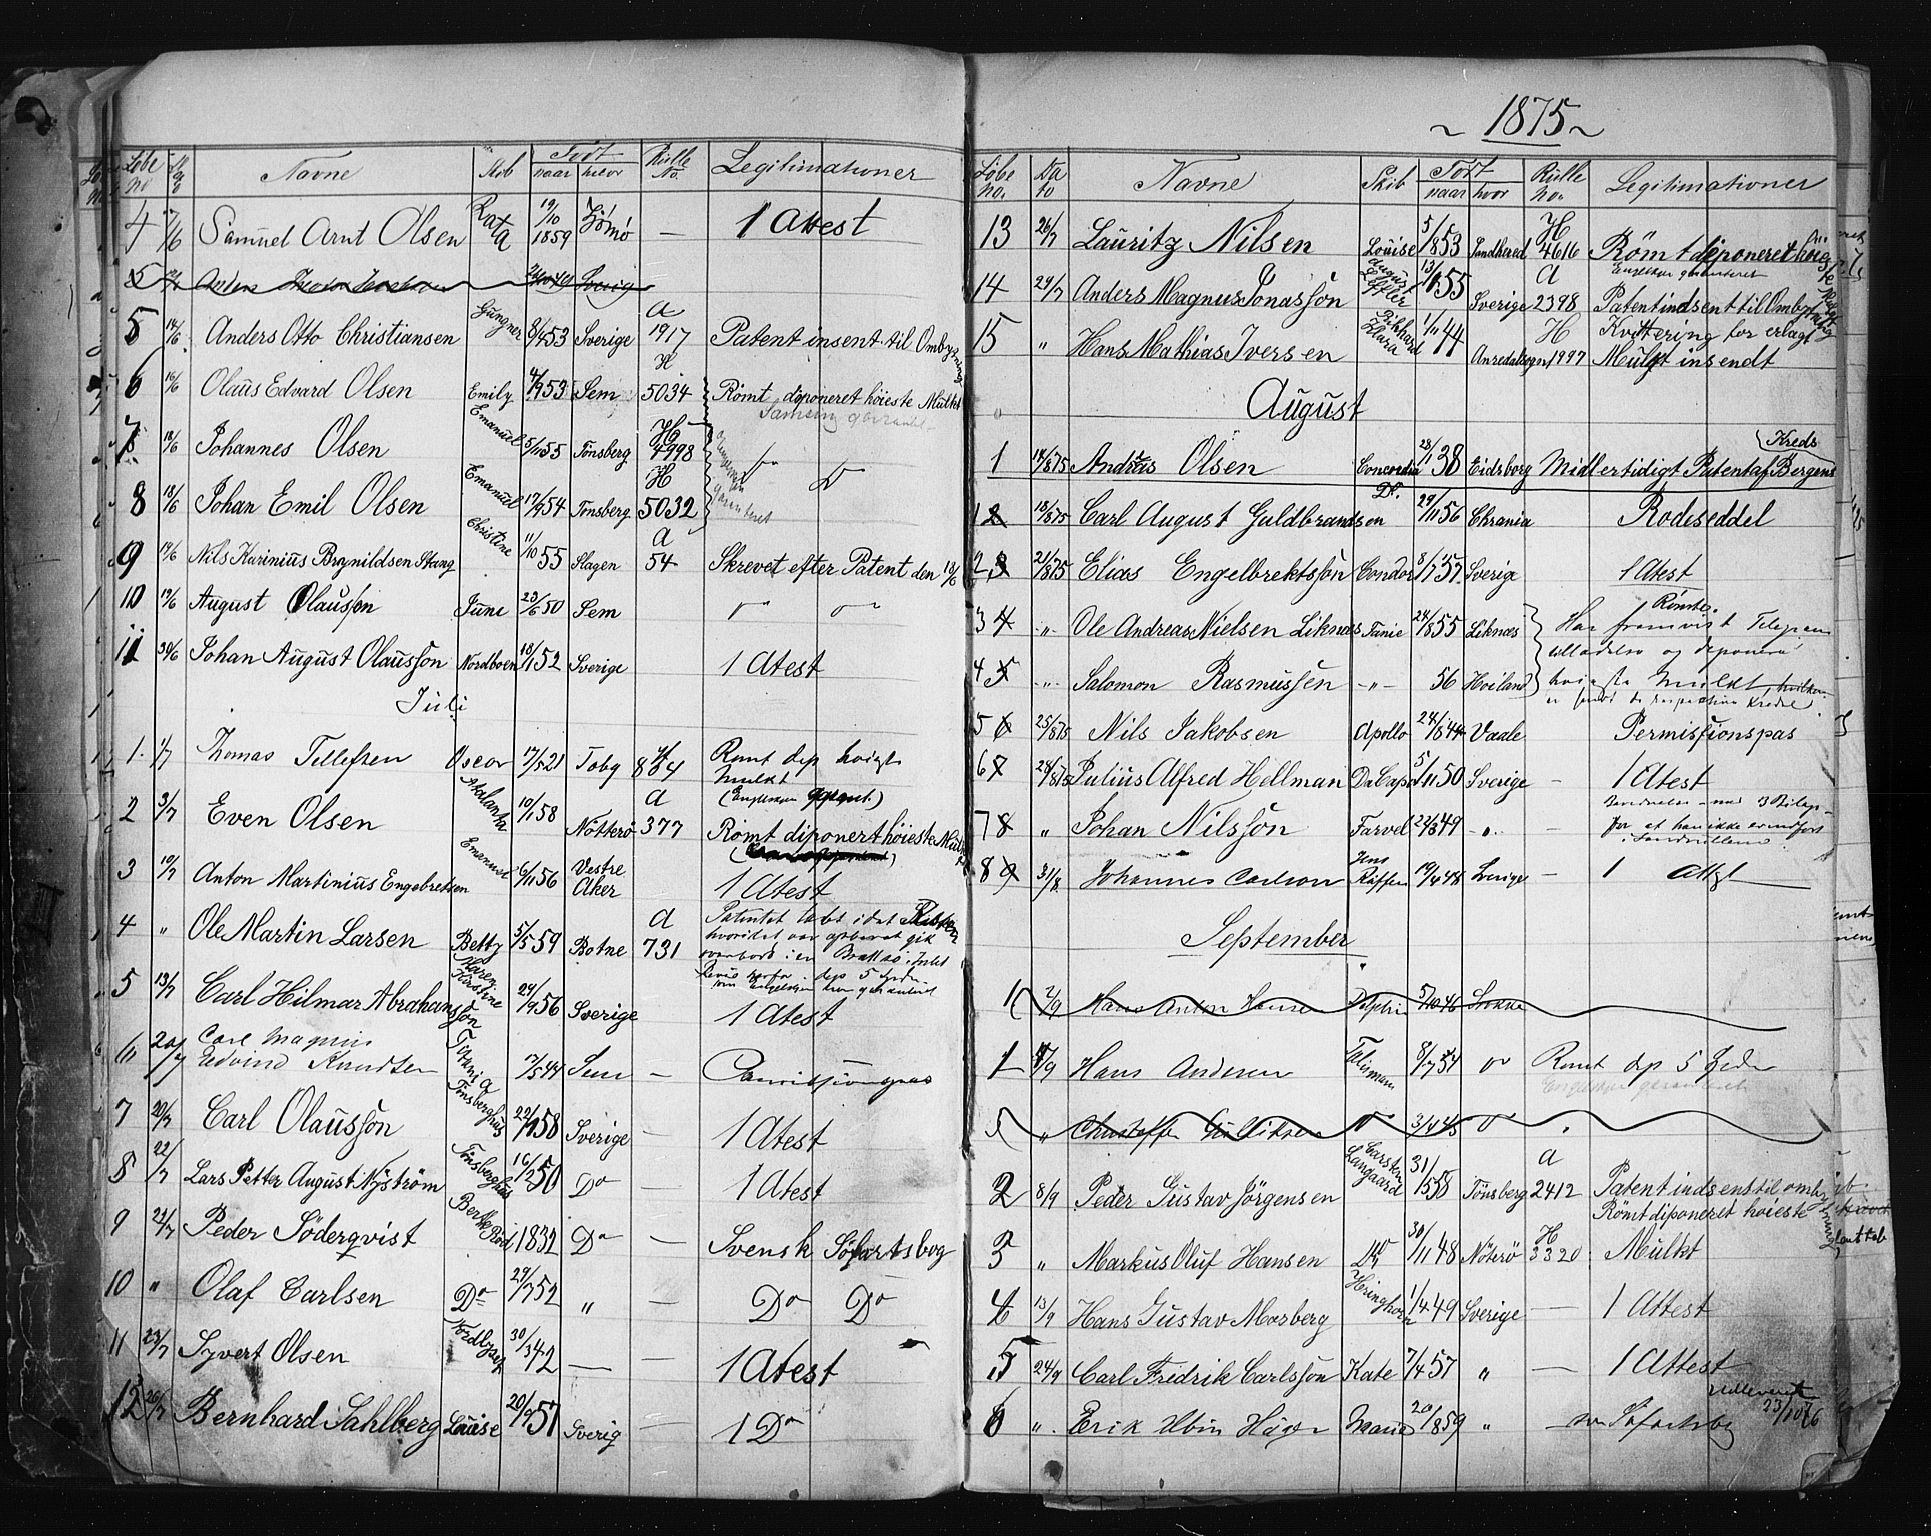 Løbe No Navne Skib Født naar hvor Rulle No. Legitimationer
4 /6 Samuel Arnt Olsen Rota 19/10 1859 Tjømø — 1 Attest
5
5 14/6 Anders Otto Christiansen Gungner 8/4 53 Sverige a 1917 Patent insent til Ombytning
6 16/6 Olaus Edvard Olsen Emily 4/9 53 Sem H 5034 Rømt diponeret høieste Mulkt
7 18/6 Johannes Olsen Emanuel 5/11 55 Tønsberg H 4998
8 18/6 Johan Emil Olsen Emanuel 17/9 54 Tønsberg H 5032
9 19/6 Nils Karinius Brynildsen Stang Christine 11/10 55 Slagen a 54 Skrevet efter Patent den 18/6
10 19/6 August Olausson Juni 23/6 50 Sem
11 30/6 Johan August Olausson Nordboen 18/1 52 Sverige 1 Atest
Juli
1. 1/7 Thomas Tellefsen Oscar 17/5 21 Toby 884 Rømt dep høieste
Mulkt
2 3/7 Even Olsen Atalanta 10/1 58 Nøtterø a 377 Rømt diponert høieste Mulkt
3 10/7 Anton Martinius Engebretsen Emanuel 6/11 56 Vestre Aker 1 Atest
4 " Ole Martin Larsen Betty 5/5 59 Botne a 731 Patentet
5 13/7 Carl Hilmar Abrahamsson Maren Kirstine 24/9 56 Sverige 1 Atest
6 20/7 Carl Magnus
Edvind Knudsen 7/5 44 Sem — Permissjonspas
7 20/7 Carl Olausson Tønsberghus 22/1 58 Sverige — 1 Atest
8 22/7 Lars Petter August Nyström Tønsberghus 16/2 50 Do — 1 Atest
9 22/7 Peder Söderqvist 1832 Do — Svensk Søfartsbog
10 " Olaf Carlsen Do 29/7 52 " — Do Do
11 23/7 Syvert Olsen 30/3 42 — — 1 Atest
12 26/7 Bernhard Sahlberg Louise 20/9 57 Sverig — 1 Do
~ 1875 ~
Løbe no. Dato Navne Skib Født naar hvor Rulle no. Legitimationer
13 26/7 Lauritz Nilsen Louise 5/1 853 Sandhered H 4616 Rømt diponeret høieste
14 29/7 Anders Magnus Jonasson August Leffler 13/1 855 Sverige a 2398 Patent indsent til Ombytning
15 " Hans Mathias Iversen 1/11 44 H 1997 Kvittering for erlagt
Mulkt insendt
August
1 14/8 75 Andreas Olsen Concordia 28/1 38 Eidsborg Midlertidigt Patent af Bergens Kreds
1 18/8 75 Carl August Guldbrandsen Do. 29/11 56 Chrania Rodeseddel
2 21/8 75 Elias Engelbrektsson Condor 8/7 57 Sverige 1 Atest
3 " Ole Andreas Nielsen Liknæs Tanie 24/8 55 Liknæs Har fremvist Telegram
4 " Salomon Rasmussen " 56 Høiland høieste Mulkt
5 25/8 75 Nils Jakobsen Apollo 24/8 44 Vaale Permissionspas
6 28/8 75 Julius Alfred Hellman Da Capo 5/11 50 Sverige — 1 Atest
7 " Johan Nilsson Farvel 22/8 49 " —
8 31/8 Johannes Carlson Jens 19/4 48 Sverige — 1 Attest
September
1 2/9 Hans Anton Hansen Delphin 5/10 46 Stokke
1 /9 Hans Andersen Talisman 8/7 51 Rømt dep 5 Zeder
5 " 3/4 45
2 8/9 Peder Gustav Jörgensen Carsten Langaard 31/1 58 Tönsberg a 2412 Patent indsens til ombytning
Rømt diponeret høieste
3 " Markus Oluf Hansen Do 30/11 48 Nöterö H 3320 Mulkt
4 13/9 Hans Gustav Morberg 1/4 49 Sverige — 1 Attest
5 24/9 Carl Fredrik Carlsson Kate 7/4 57 " — 1 Attest
6 " Erik Albin Maria 20/1 859 " — Søfartsbog udleveret 23/10 76